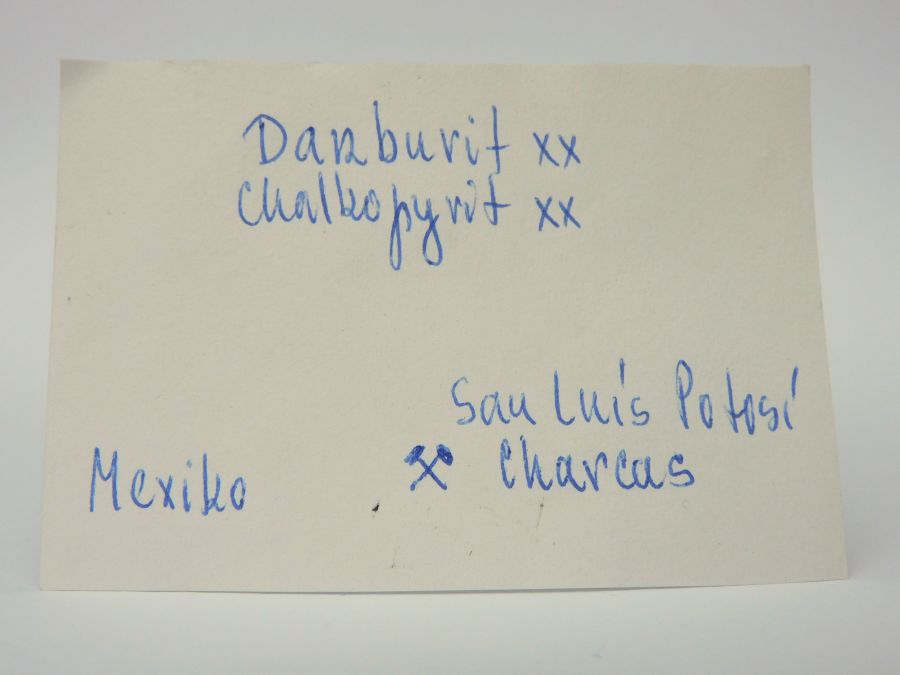 Danburit xx
Chalkopyrit xx
San Luís Potosí
Mexiko ⚒ Charcas